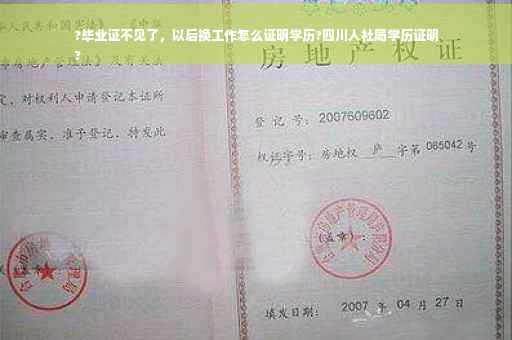 ?毕业证不见了，以后换工作怎么证明学历?四川人社局学历证明
?
华人民共和国
地产管理法》及有关法
定，对权利人申请登记本证所
审查属实，准予登记，特发此
房地产权证
登记号：2007609602
权证字号：房地权 庐 字第 065042 号
（盖章）：
填发日期： 2007 年 04 月 27 日